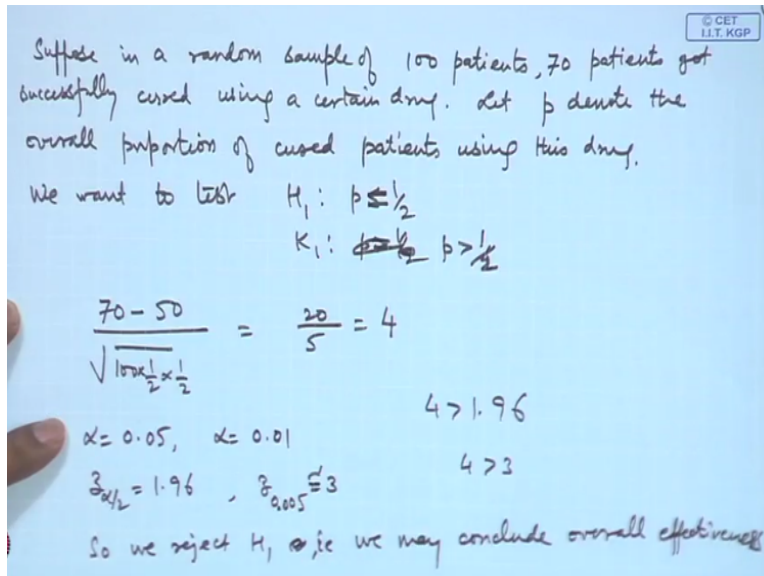 © CET
I.I.T. KGP
Suppose in a random sample of 100 patients, 70 patients got
successfully cured using a certain drug. Let p denote the
overall proportion of cured patients using this drug.
We want to test H₁: p ≤ 1/2
K₁: p > 1/2
(70 - 50) / √(100 × 1/2 × 1/2) = 20/5 = 4
4 > 1.96
α = 0.05, α = 0.01
4 > 3
z_{α/2} = 1.96, z_{0.005} ≅ 3
So we reject H₁, ie we may conclude overall effectiveness